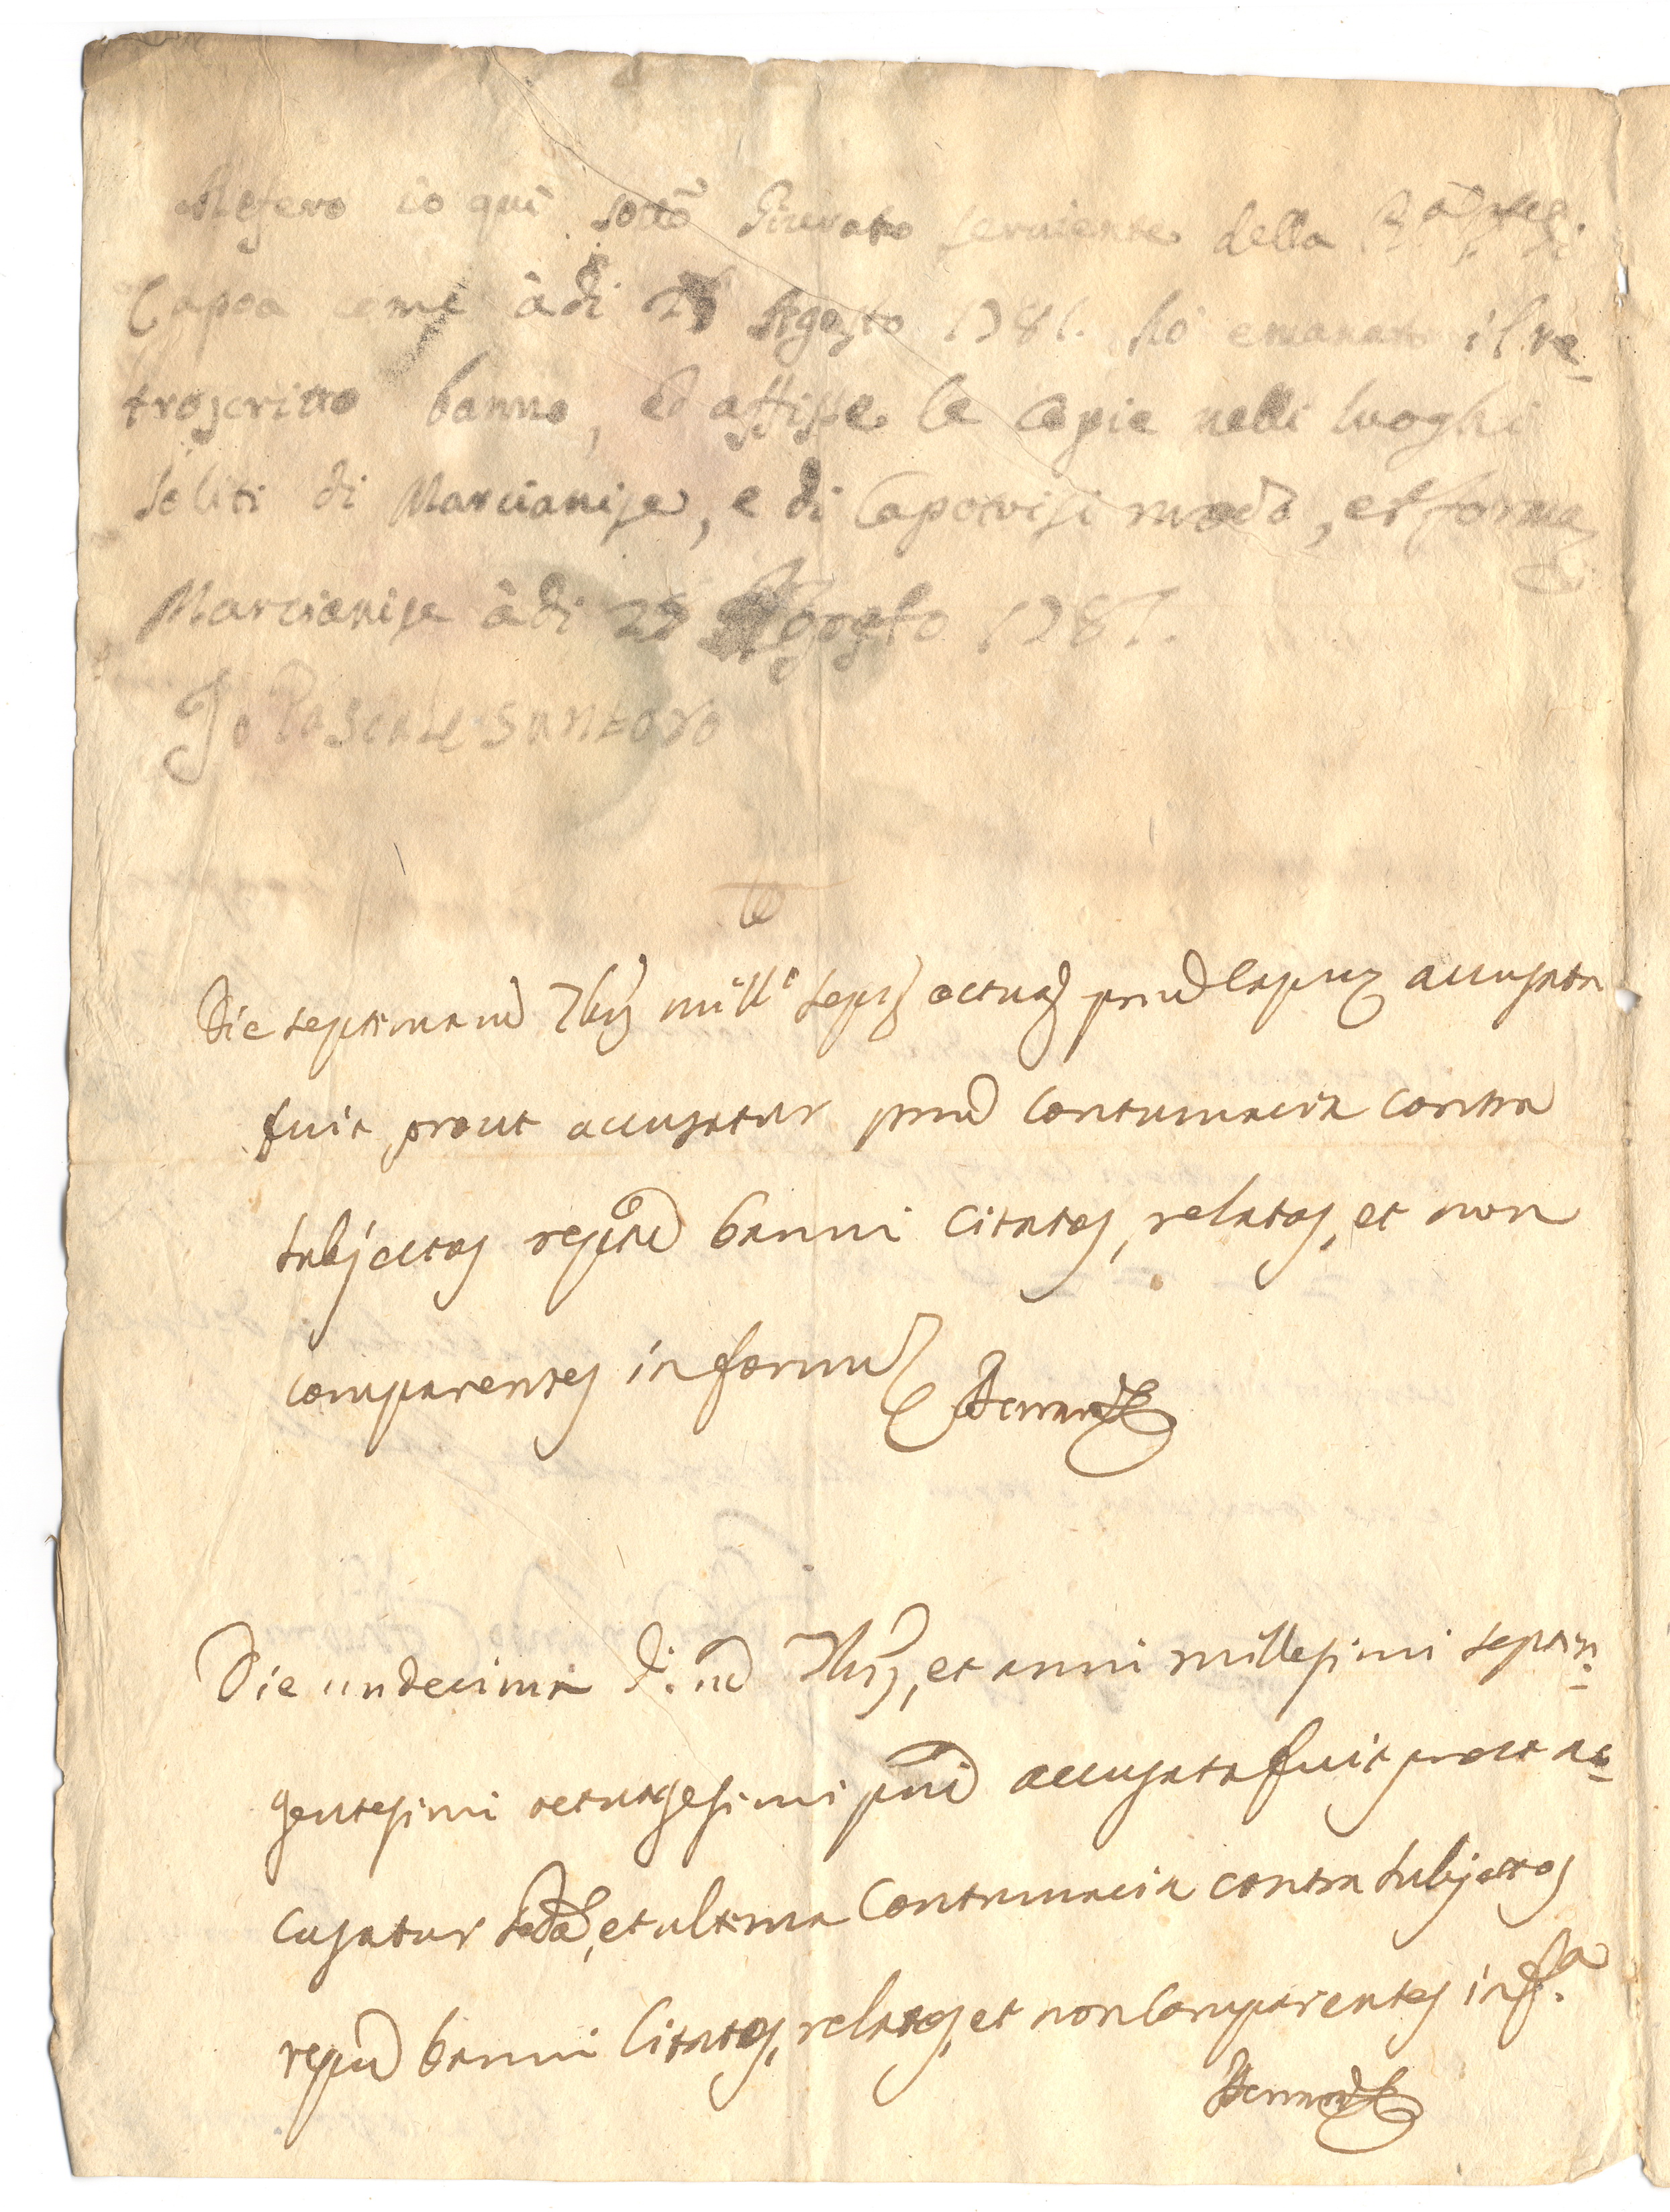 Refero io quì sottõ Giurato serviente della
Capoa come àdi Agosto 1781. hò emanato il re=
troscritto banno, ed affisse le copie nelli luoghi
soliti di Marcianise, e di Capodrisi modo, et forma
Marcianise àdi Agosto 1781.
Io Pascale Santoro
Die septima 7bris mill.e accusata
fuit prout accusatur contumacia contra
subjectos banni citatos, relatos, et non
comparentes in forma
Die undecima 7bris, et anni millesimi septin=
gentesimi octuagesimi accusata fuit prout ac=
cusatur et ultima contumacia contra subjectos
banni citatos, relatos, et non comparentes in f.a